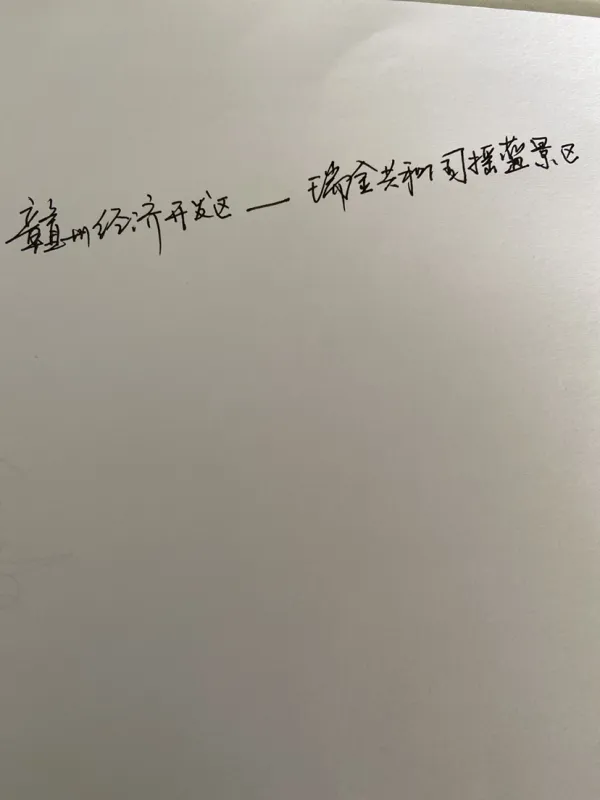 赣州经济开发区 — 瑞金共和国摇蓝景区